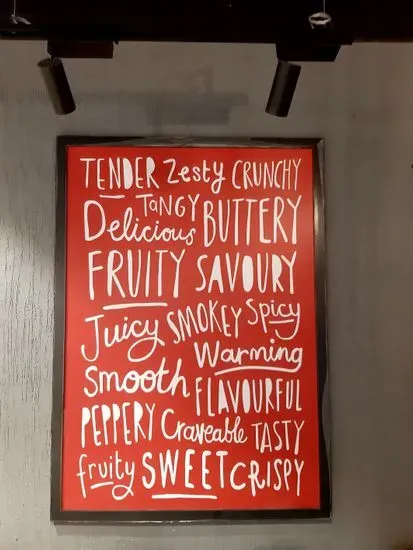 TENDER Zesty CRUNCHY
TaNGY
Delicious BUTTERY
FRUITY SAVOURY
Juicy SMOKEY Spicy
Warming
Smooth FLAVOURFUL
PEPPERY Craveable TASTY
fruity SWEET CRISPY